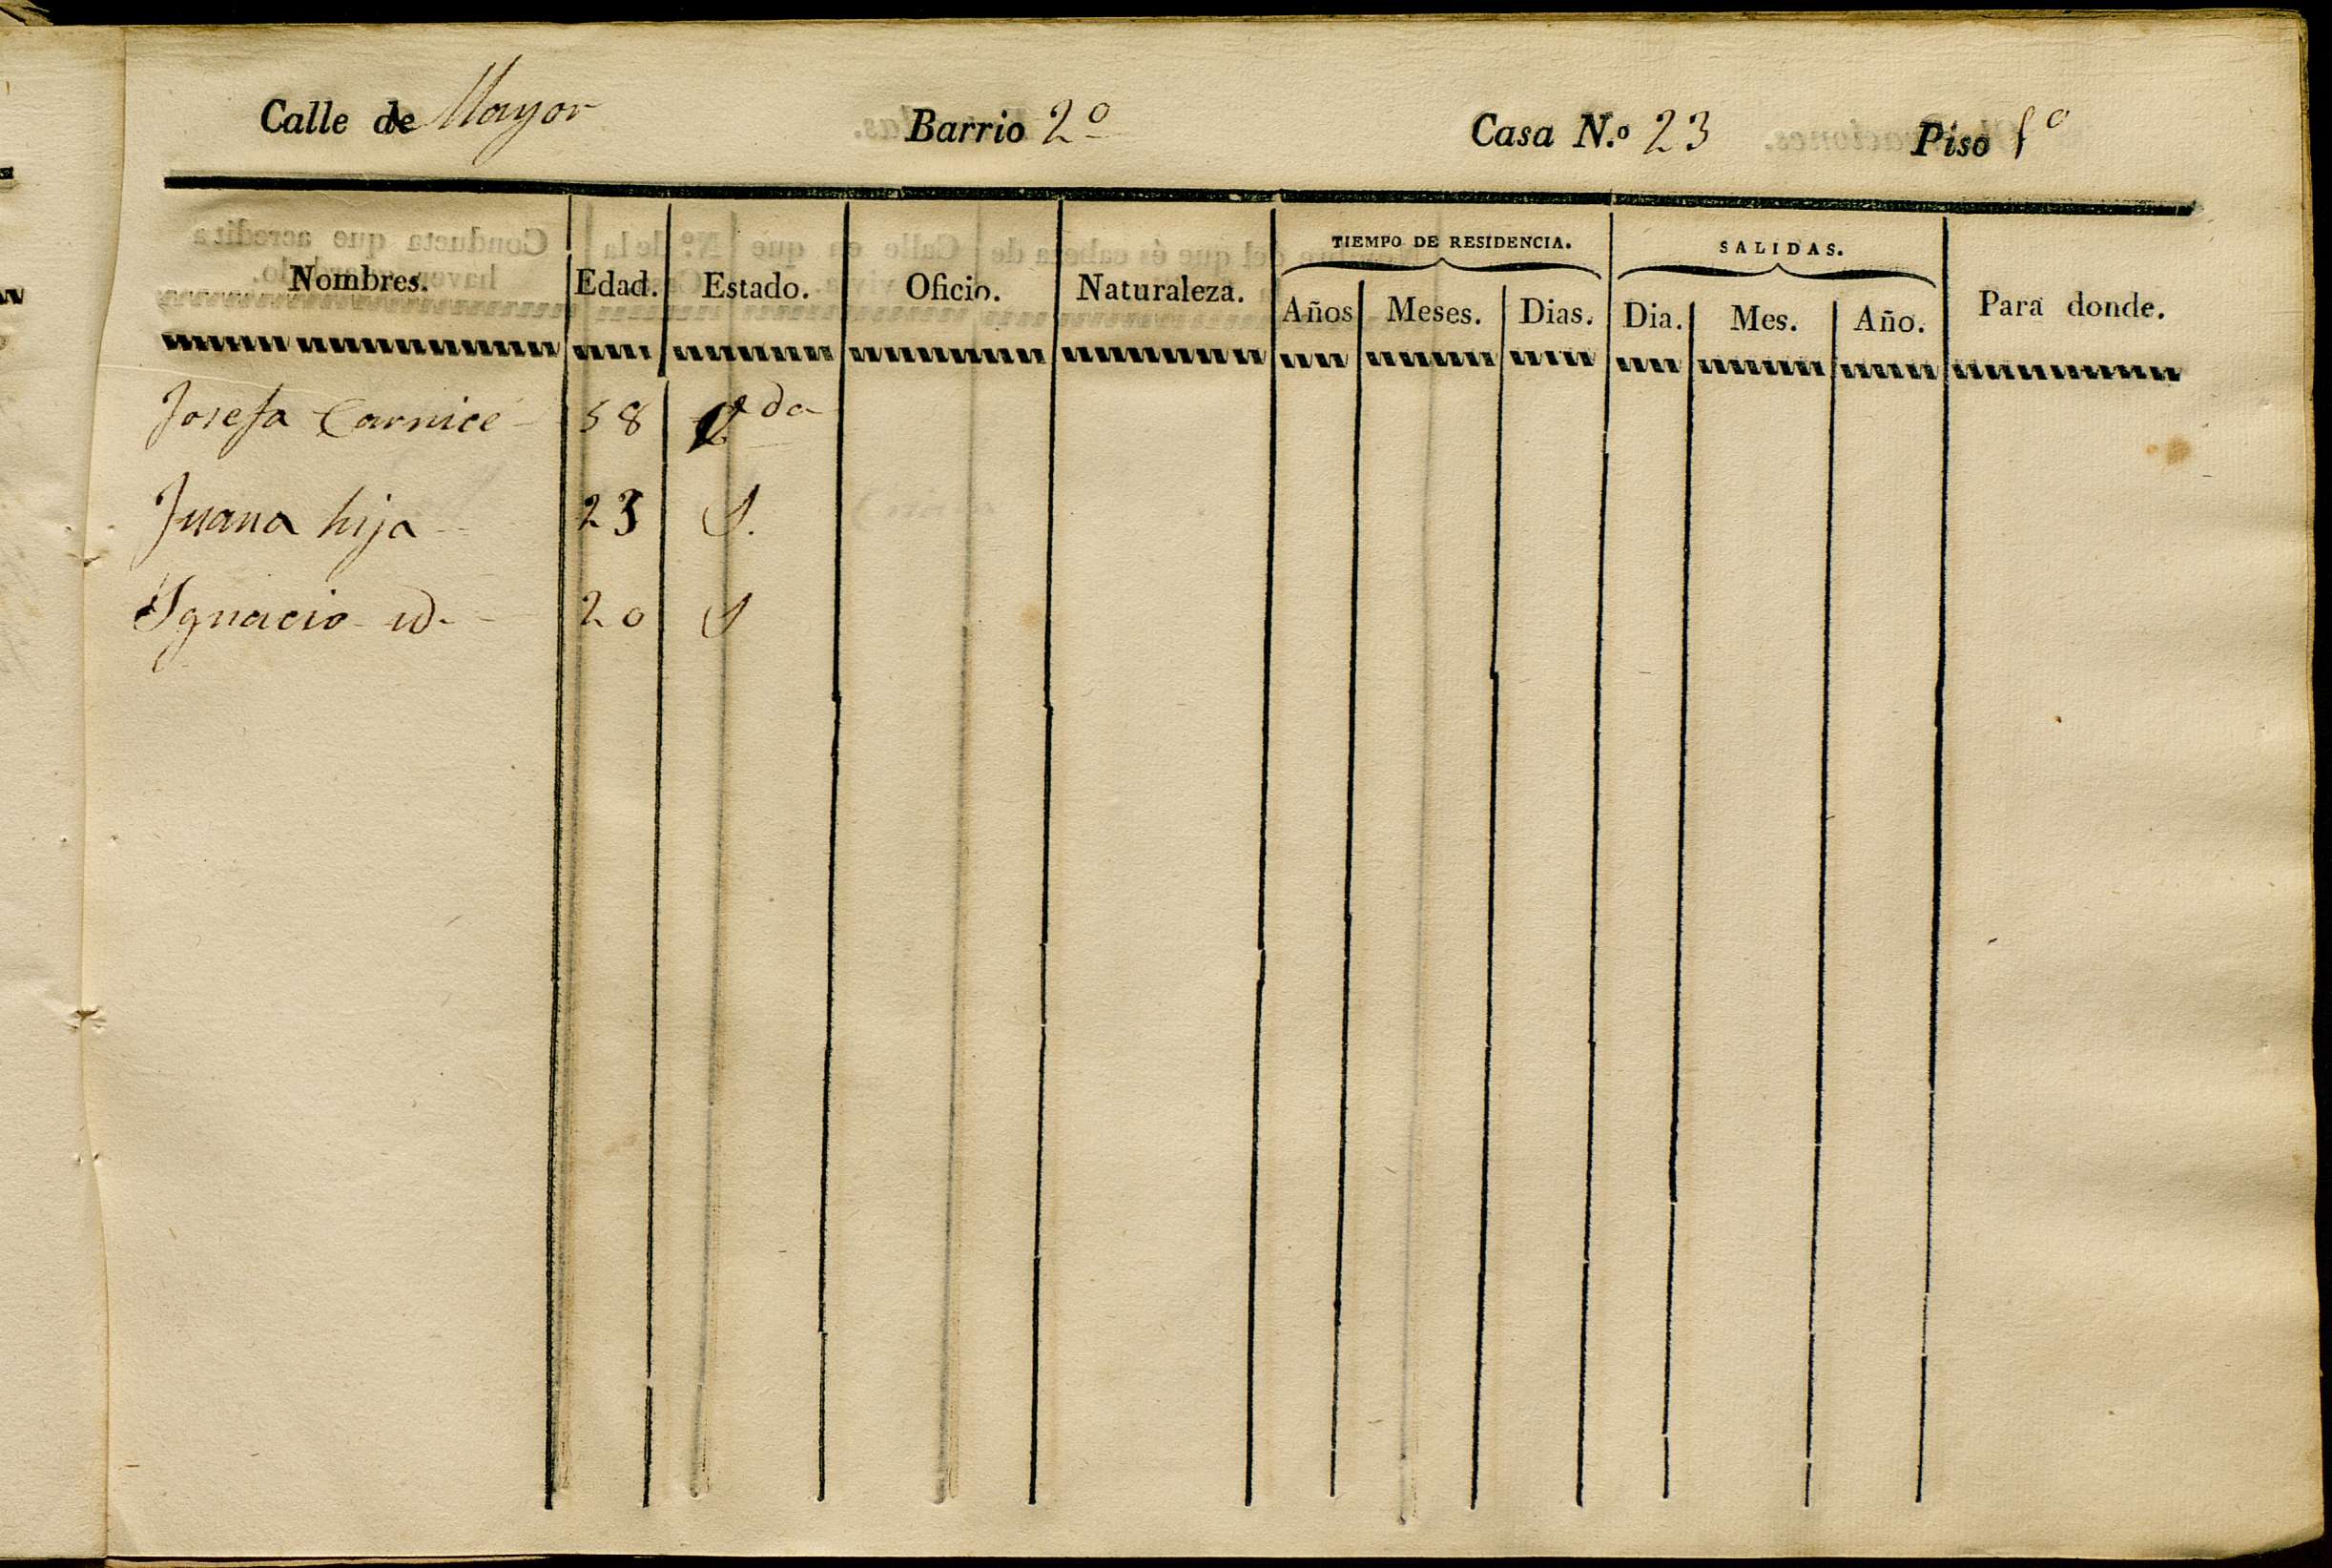 Calle de Mayor Barrio 2º Casa N.º 23 Piso 1º
TIEMPO DE RESIDENCIA. SALIDAS.
Nombres. Edad. Estado. Oficio. Naturaleza. Años Meses. Dias. Dia. Mes. Año. Para donde.
Josefa Carnicé 58 Vda
Juana hija 23 S.
Ygnacio id. 20 S